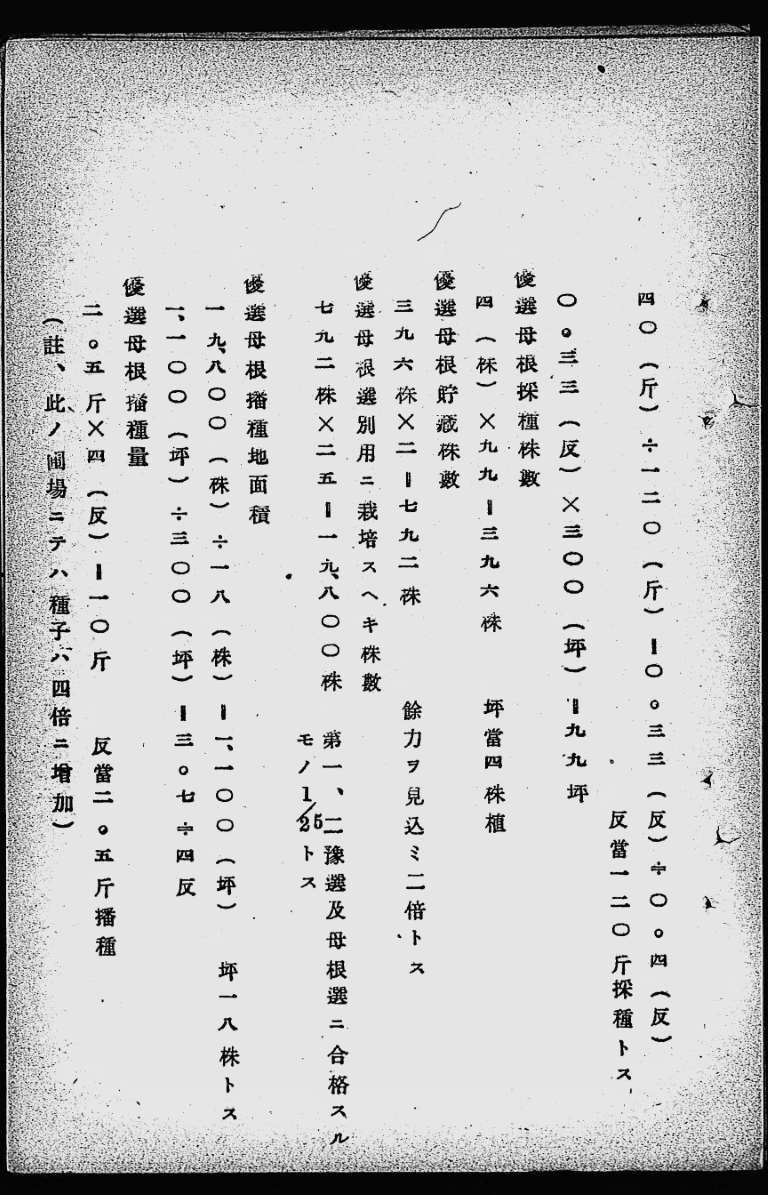 四〇（斤）÷一二〇（斤）＝〇。三三（反）÷〇。四（反）
反當一二〇斤採種トス
〇。三三（反）×三〇〇（坪）＝九九坪
優選母根採種株數
四（株）×九九＝三九六株　坪當四株植
優選母根貯藏株數
三九六株×二＝七九二株　餘力ヲ見込ミ二倍トス
優選母根選別用ニ栽培スヘキ株數
七九二株×二五＝一九、八〇〇株　第一、二豫選及母根選ニ合格スル
モノ1/25トス
優選母根播種地面積
一九、八〇〇（株）÷一八（株）＝一、一〇〇（坪）　坪一八株トス
一、一〇〇（坪）÷三〇〇（坪）＝三。七÷四反
優選母根播種量
二。五斤×四（反）＝一〇斤　反當二。五斤播種
（註、此ノ圃場ニテハ種子ハ四倍ニ增加）